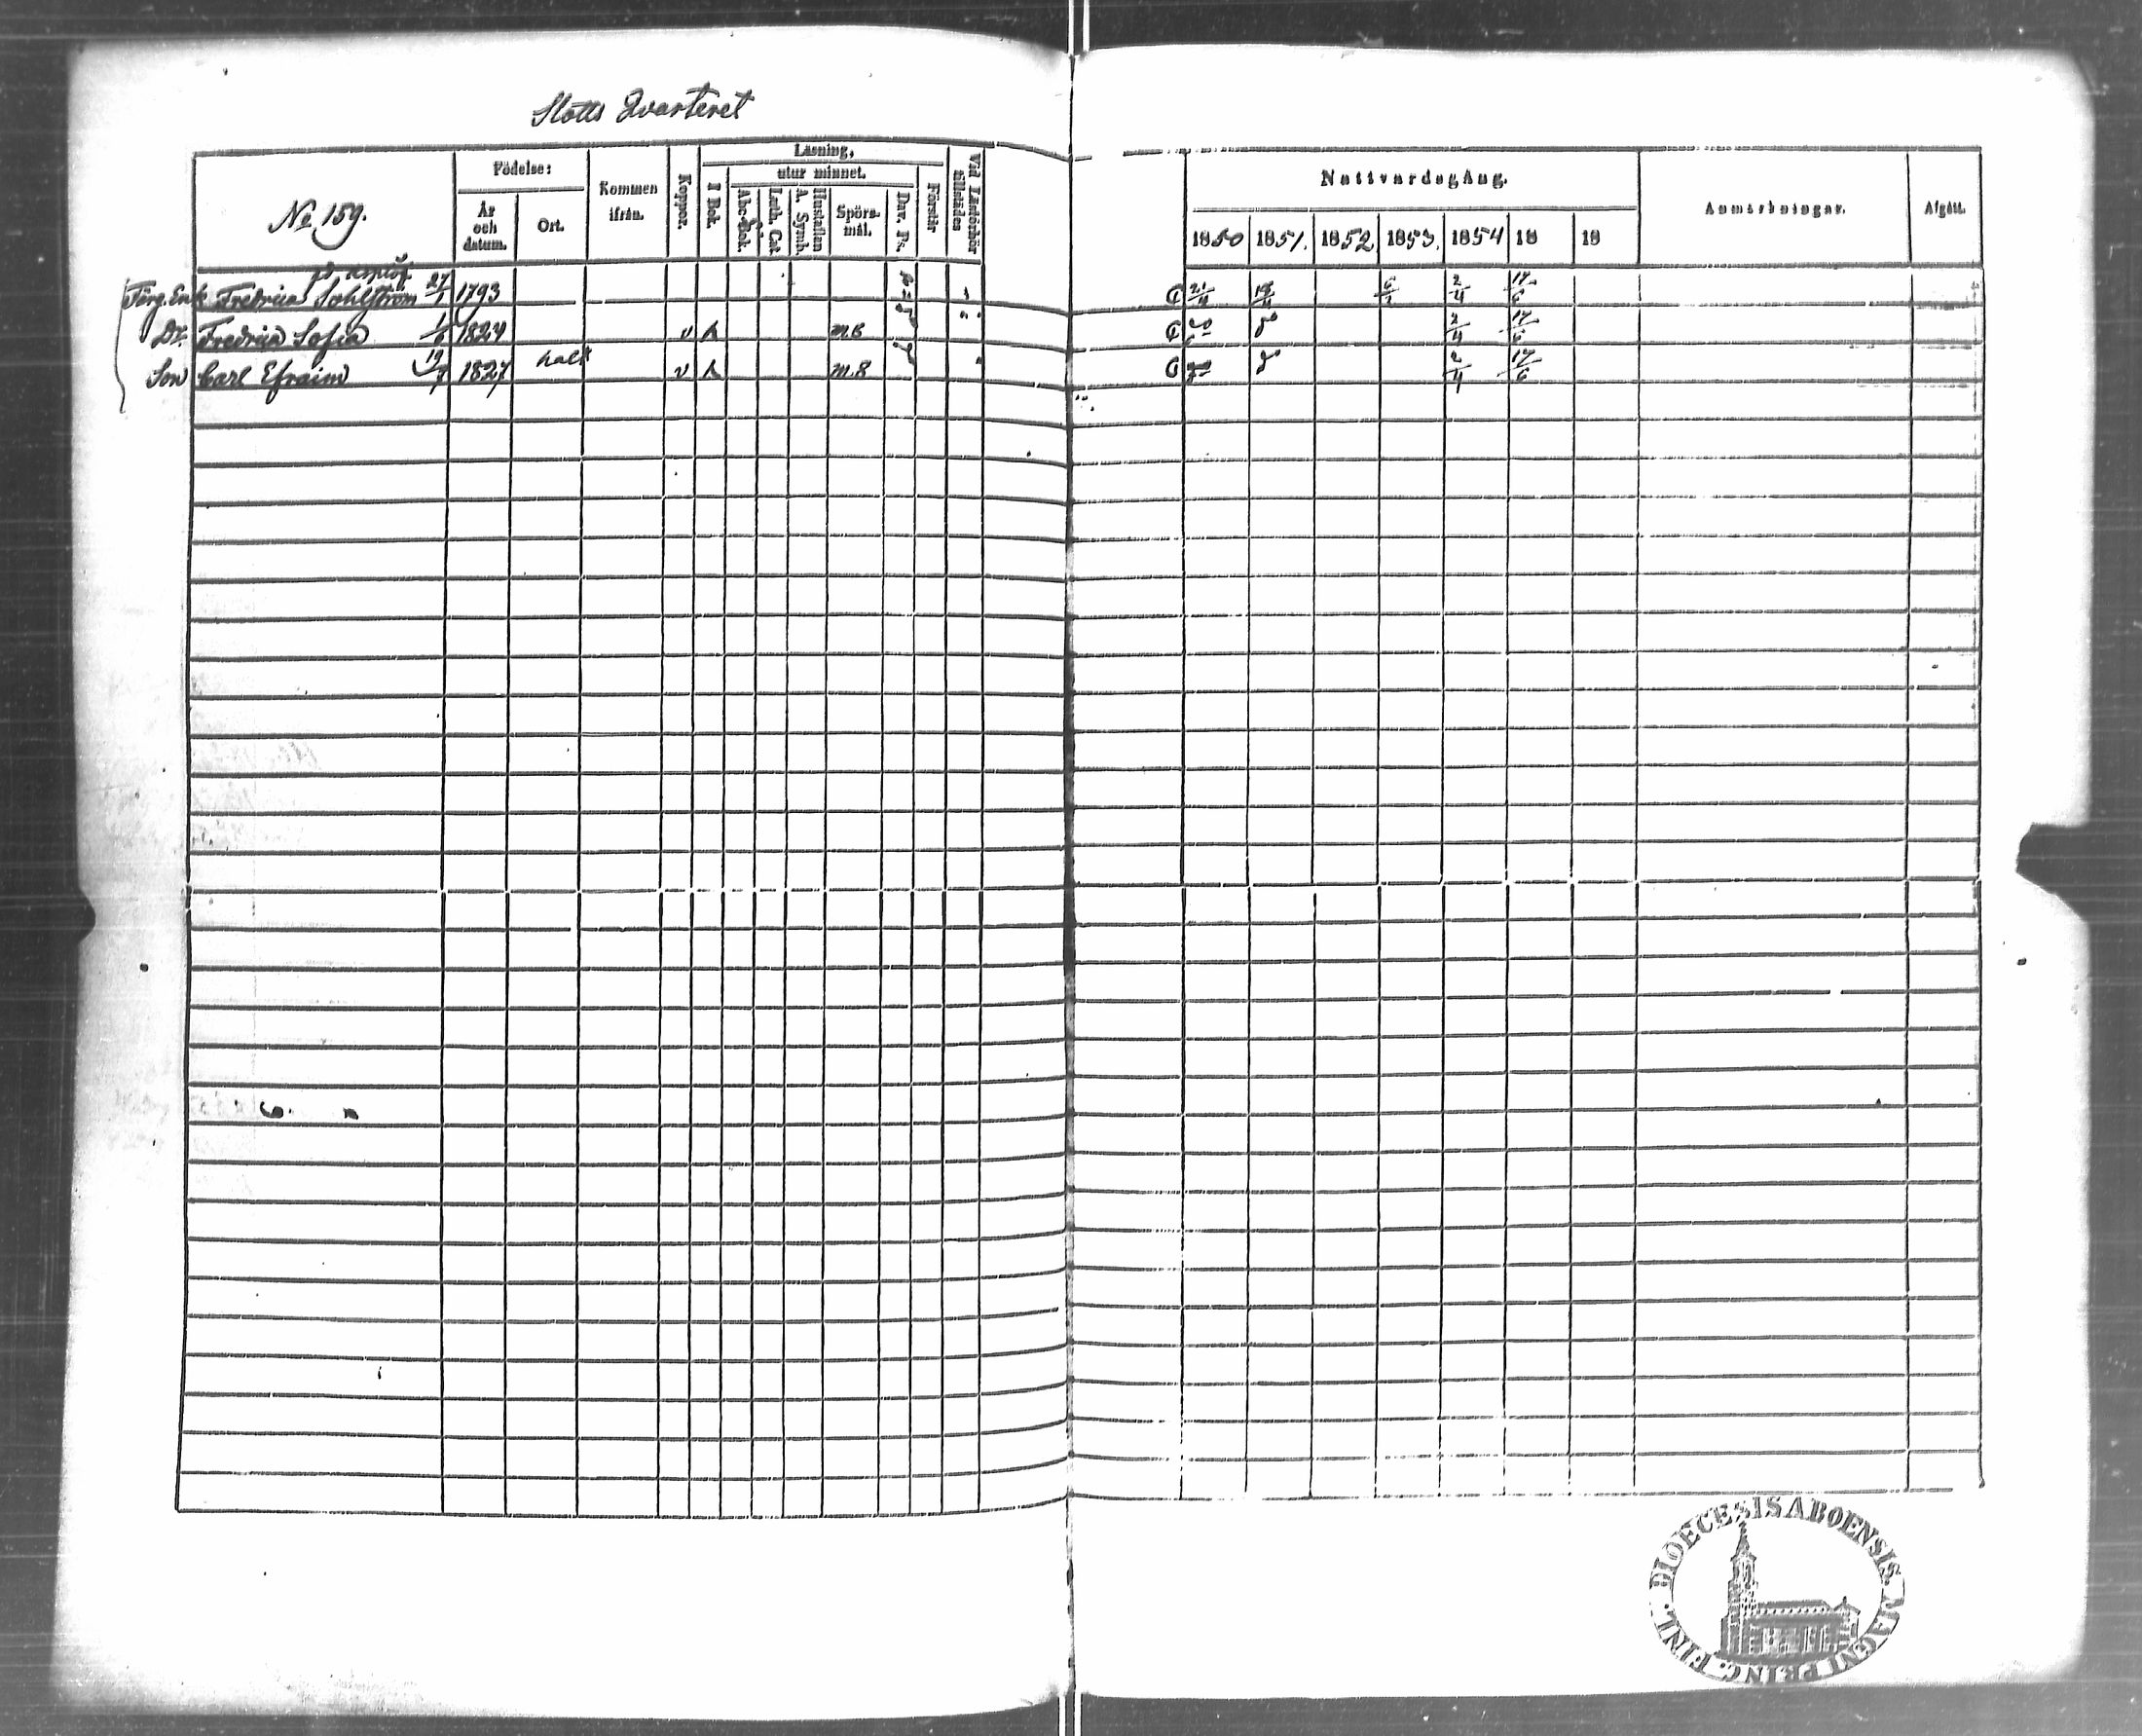 Slotts Qvarteret
No 159.
Födelse:
År och datum.
Ort.
Kommen ifrån.
Koppor.
Läsning,
I Bok.
utur minnet.
Abc-Bok.
Luth. Cat.
A. Symb. Hustaflan
Spörsmål.
Dav. Ps.
Förstår
Vid Läsförhör tillstädes
Nattvardsgång.
1850 1851. 1852 1853. 1854 18 18
Anmärkningar.
Afgått.
Enk Fredrica Sohlström 27/1 1793 2/4 17/6
Dr. Fredrica Sofia 1824 v h 2/4 17/6
Son Carl Efraim 19 1827 halt v h m.8 2/4 17/6
DIOECESIS ABOENSIS. MAGNI PRINC. FINL.